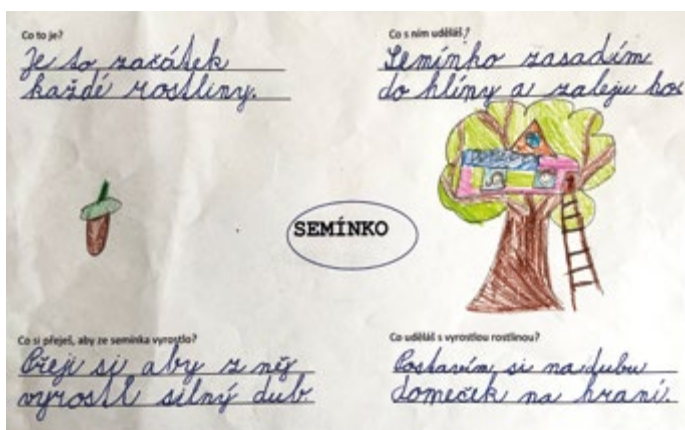 Co to je?
Je to začátek
každé rostliny.
Co s ním uděláš?
Semínko zasadím
do hlíny a zaleju ho
SEMÍNKO
Co si přeješ, aby ze semínka vyrostlo?
Přeji si aby z něj
vyrostl silný dub
Co uděláš s vyrostlou rostlinou?
Postavím si na dubu
domeček na hraní.